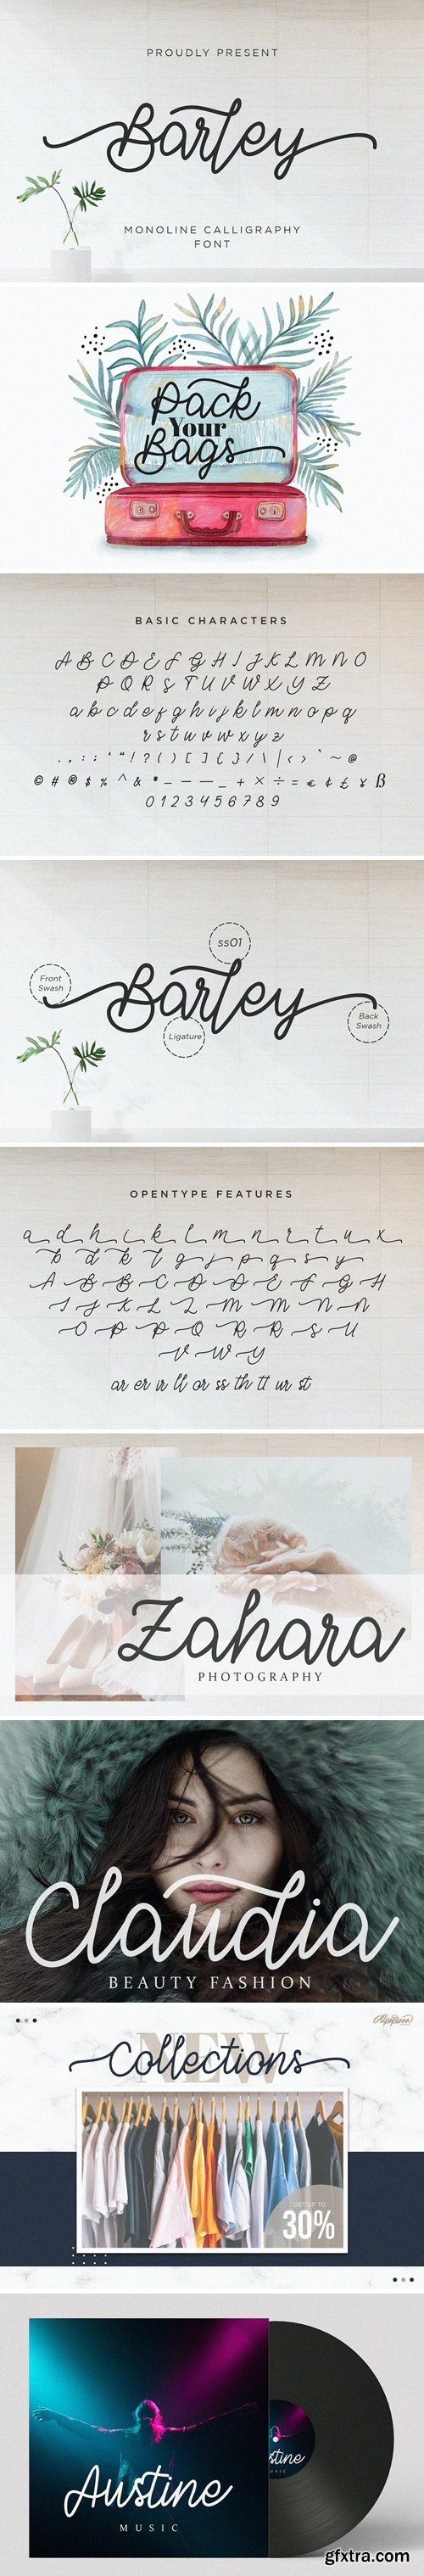 PROUDLY PRESENT
Barley
MONOLINE CALLIGRAPHY
FONT
Pack
Your
Bags
BASIC CHARACTERS
A B C D E F G H I J K L M N O
P Q R S T U V W X Y Z
a b c d e f g h i j k l m n o p q
r s t u v w x y z
. , : ; ' " ! ? ( ) [ ] { } / \ | < > ` ~ @
© # @ $ % ^ & * – — — _ + × ÷ = € ¢ £ ¥ ß
0 1 2 3 4 5 6 7 8 9
ss01
Front
Swash
Barley
Back
Swash
Ligature
OPENTYPE FEATURES
a d h i k l m n r t u x
b d k l g j p q s y
A B B C D D E F G H
I J K L L M M N N
O P P Q R R S U
V W Y
ar er ir ll or ss th tt ur st
Zahara
PHOTOGRAPHY
Claudia
BEAUTY FASHION
NEW
Collections
GET UP TO
30%
Austine
MUSIC
stine
USIC
gfxtra.com